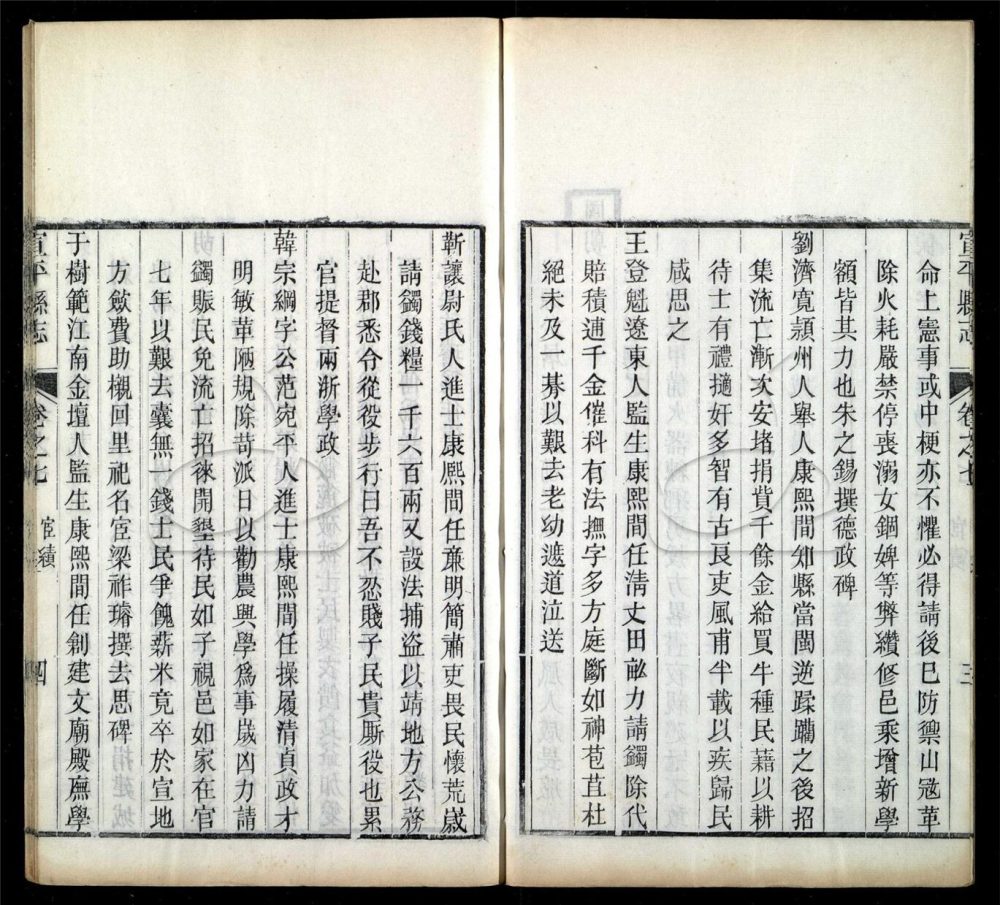 宣平縣志
卷之七
宦績
三
命上憲事或中梗亦不懼必得請後巳防禦山冦革
除火耗嚴禁停喪溺女錮婢等弊纘修邑乘增新學
額皆其力也朱之錫撰德政碑
劉濟寬潁州人舉人康熙間知縣當閩逆蹂躪之後招
集流亡漸次安堵捐貲千餘金給買牛種民藉以耕
待士有禮擿奸多智有古良吏風甫半載以疾歸民
咸思之
王登魁遼東人監生康熙間任淸丈田畝力請鐲除代
賠積逋千金催科有法撫字多方庭斷如神苞苴杜
絕未及一朞以艱去老幼遮道泣送
靳讓尉氏人進士康熙間任亷明簡肅吏畏民懷荒歲
請鐲錢糧一千六百兩又設法捕盜以靖地方公務
赴郡悉令從役步行曰吾不忍賤子民貴厮役也累
官提督兩浙學政
韓宗綱字公范宛平人進士康熙間任操履清貞政才
明敏革陋規除苛派日以勸農興學爲事歲凶力請
鐲賑民免流亡招徠開墾待民如子視邑如家在官
七年以艱去囊無一錢士民爭餽薪米竟卒於宣地
方斂費助櫬回里祀名宦梁祚璿撰去思碑
于樹範江南金壇人監生康熙間任創建文廟殿廡學
宣平縣志
卷之七
宦績
四